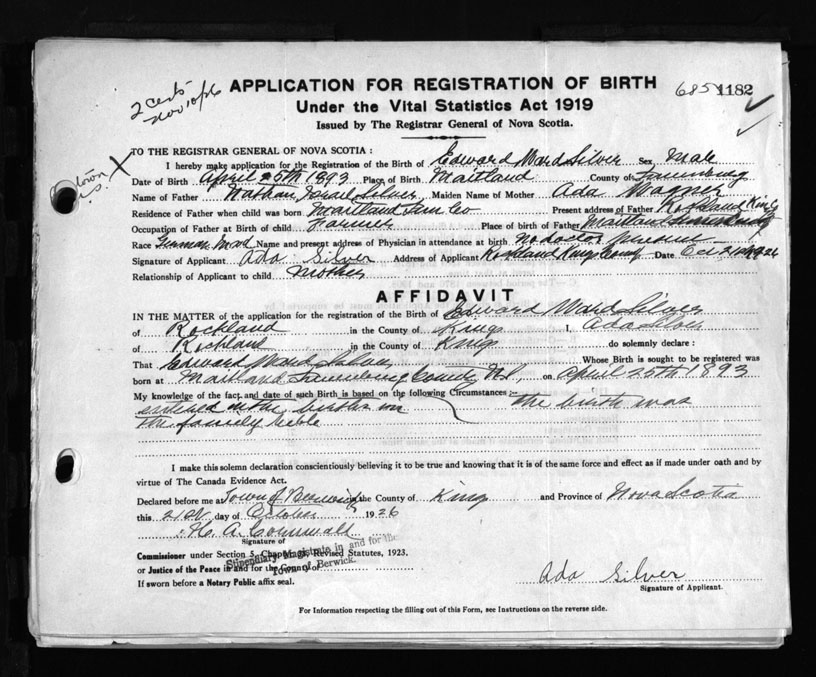 2 certs
Nov 10/26
APPLICATION FOR REGISTRATION OF BIRTH
685 1182
Under the Vital Statistics Act 1919
Issued by The Registrar General of Nova Scotia.
TO THE REGISTRAR GENERAL OF NOVA SCOTIA :
I hereby make application for the Registration of the Birth of Edward Ward Silver Sex Male
Date of Birth April 25th 1893 Place of Birth Maitland County of Lunenburg
Name of Father Nathan Israel Silver Maiden Name of Mother Ada Wagner
Residence of Father when child was born Maitland Lun Co Present address of Father Rockland Kings
Occupation of Father at Birth of child Farmer Place of birth of Father Maitland Lunenburg
Race German Name and present address of Physician in attendance at birth no doctor present
Signature of Applicant Ada Silver Address of Applicant Rockland Kings County Date Oct 21 1926
Relationship of Applicant to child Mother
AFFIDAVIT
IN THE MATTER of the application for the registration of Birth of Edward Ward Silver
of Rockland in the County of Kings I, Ada Silver
of Rockland in the County of Kings do solemnly declare :
That Edward Ward Silver Whose Birth is sought to be registered was
born at Maitland Lunenburg County N.S., on April 25th 1893
My knowledge of the fact, and date of such Birth is based on the following Circumstances :- the birth was
entered in the births in
the family bible
I make this solemn declaration conscientiously believing it to be true and knowing that it is of the same force and effect as if made under oath and by
virtue of The Canada Evidence Act.
Declared before me at Town of Berwick the County of Kings and Province of Nova Scotia
this 21st day of October 1926
H. A. Cornwall
Signature of
Commissioner under Section 5, Chapter Revised Statutes, 1923.
Stipendiary Magistrate in and for the
or Justice of the Peace in and for the County of
Town of Berwick.
If sworn before a Notary Public affix seal.
Ada Silver
Signature of Applicant.
For Information respecting the filling out of this Form, see Instructions on the reverse side.